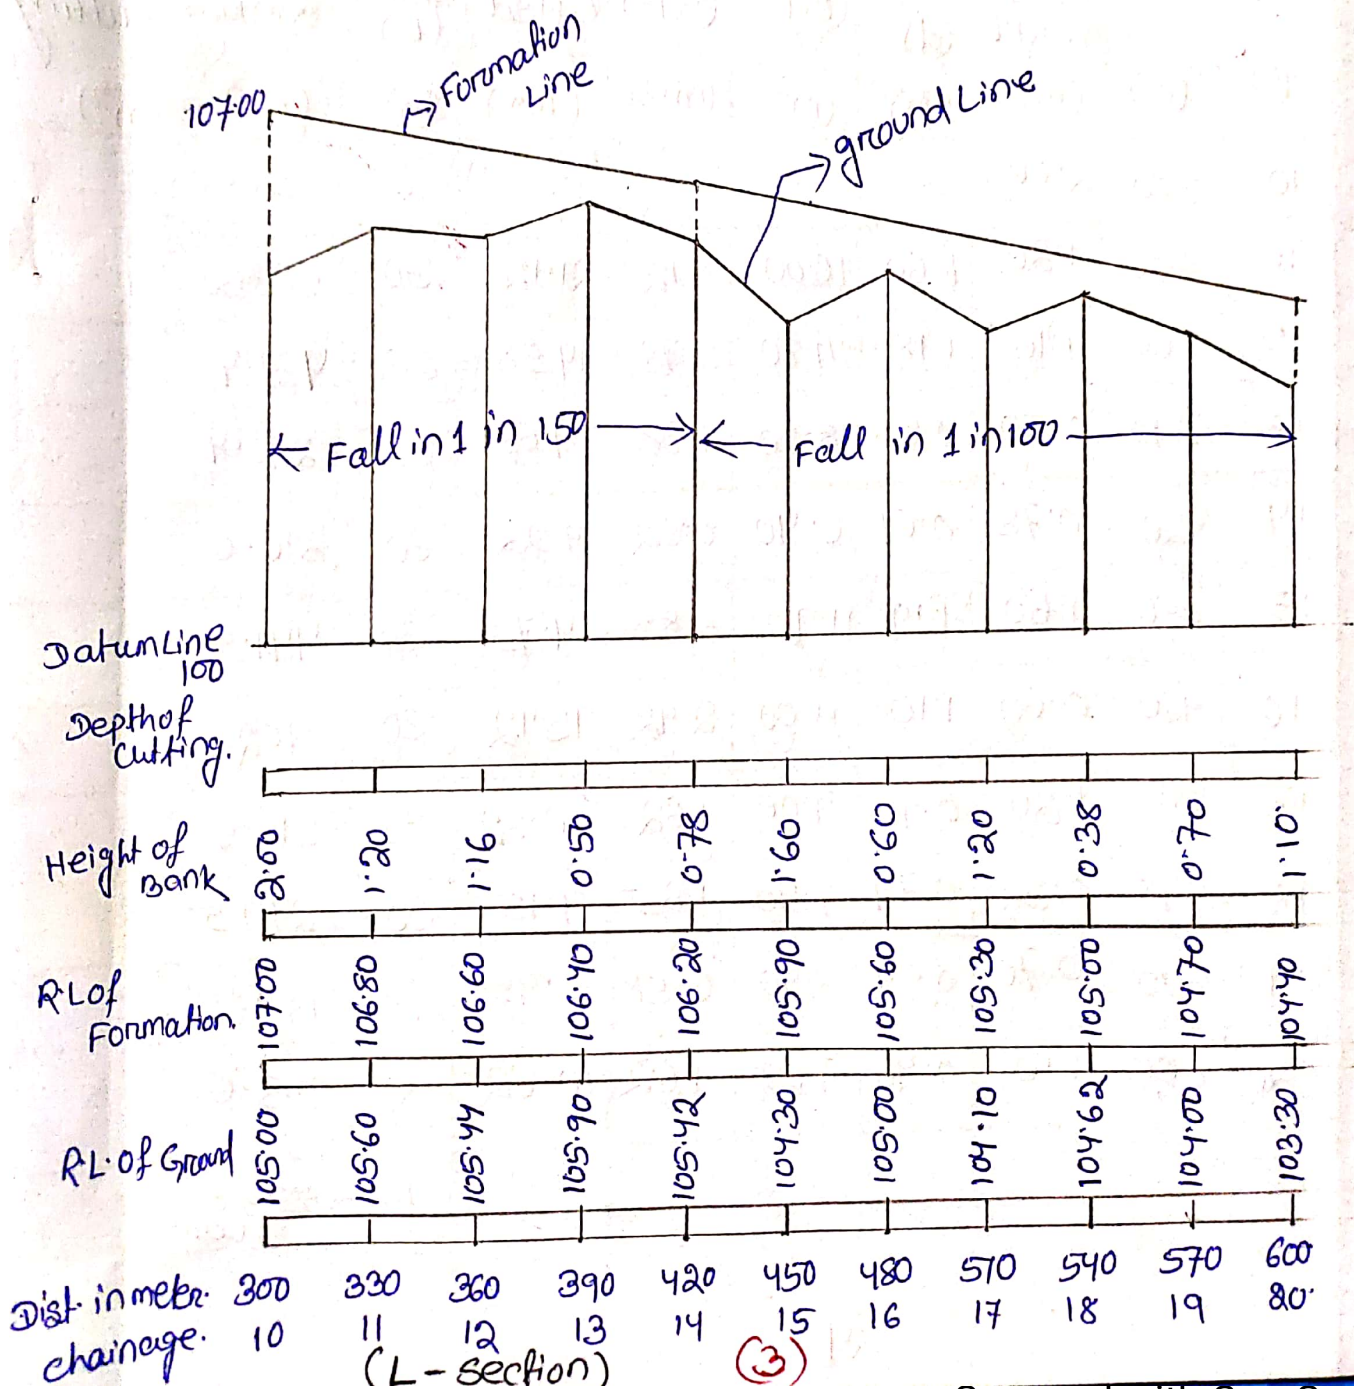 Formation
Line
107.00
ground Line
Fall in 1 in 150
Fall in 1 in 100
Datum Line
100
Depth of
Cutting.
Height of
Bank
2.00 1.20 1.16 0.50 0.78 1.60 0.60 1.20 0.38 0.70 1.10
R.L of
Formation.
107.00 106.80 106.60 106.40 106.20 105.90 105.60 105.30 105.00 104.70 104.40
R.L. Of Ground
105.00 105.60 105.44 105.90 105.42 104.30 105.00 104.10 104.62 104.00 103.30
Dist. in meter. 300 330 360 390 420 450 480 510 540 570 600
chainage. 10 11 12 13 14 15 16 17 18 19 20
(L-section)
3